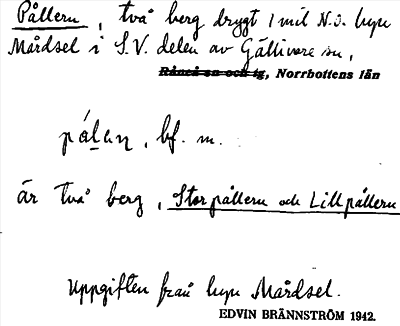 Pållern, två berg drygt 1 mil N.O. byn
Mårdsel i S.V. delen av Gällivare sn,
Råneå sn och tg, Norrbottens län
pålen, bf. m.
är två berg, Storpållern och Lillpållern
Uppgiften från byn Mårdsel.
EDVIN BRÄNNSTRÖM 1942.